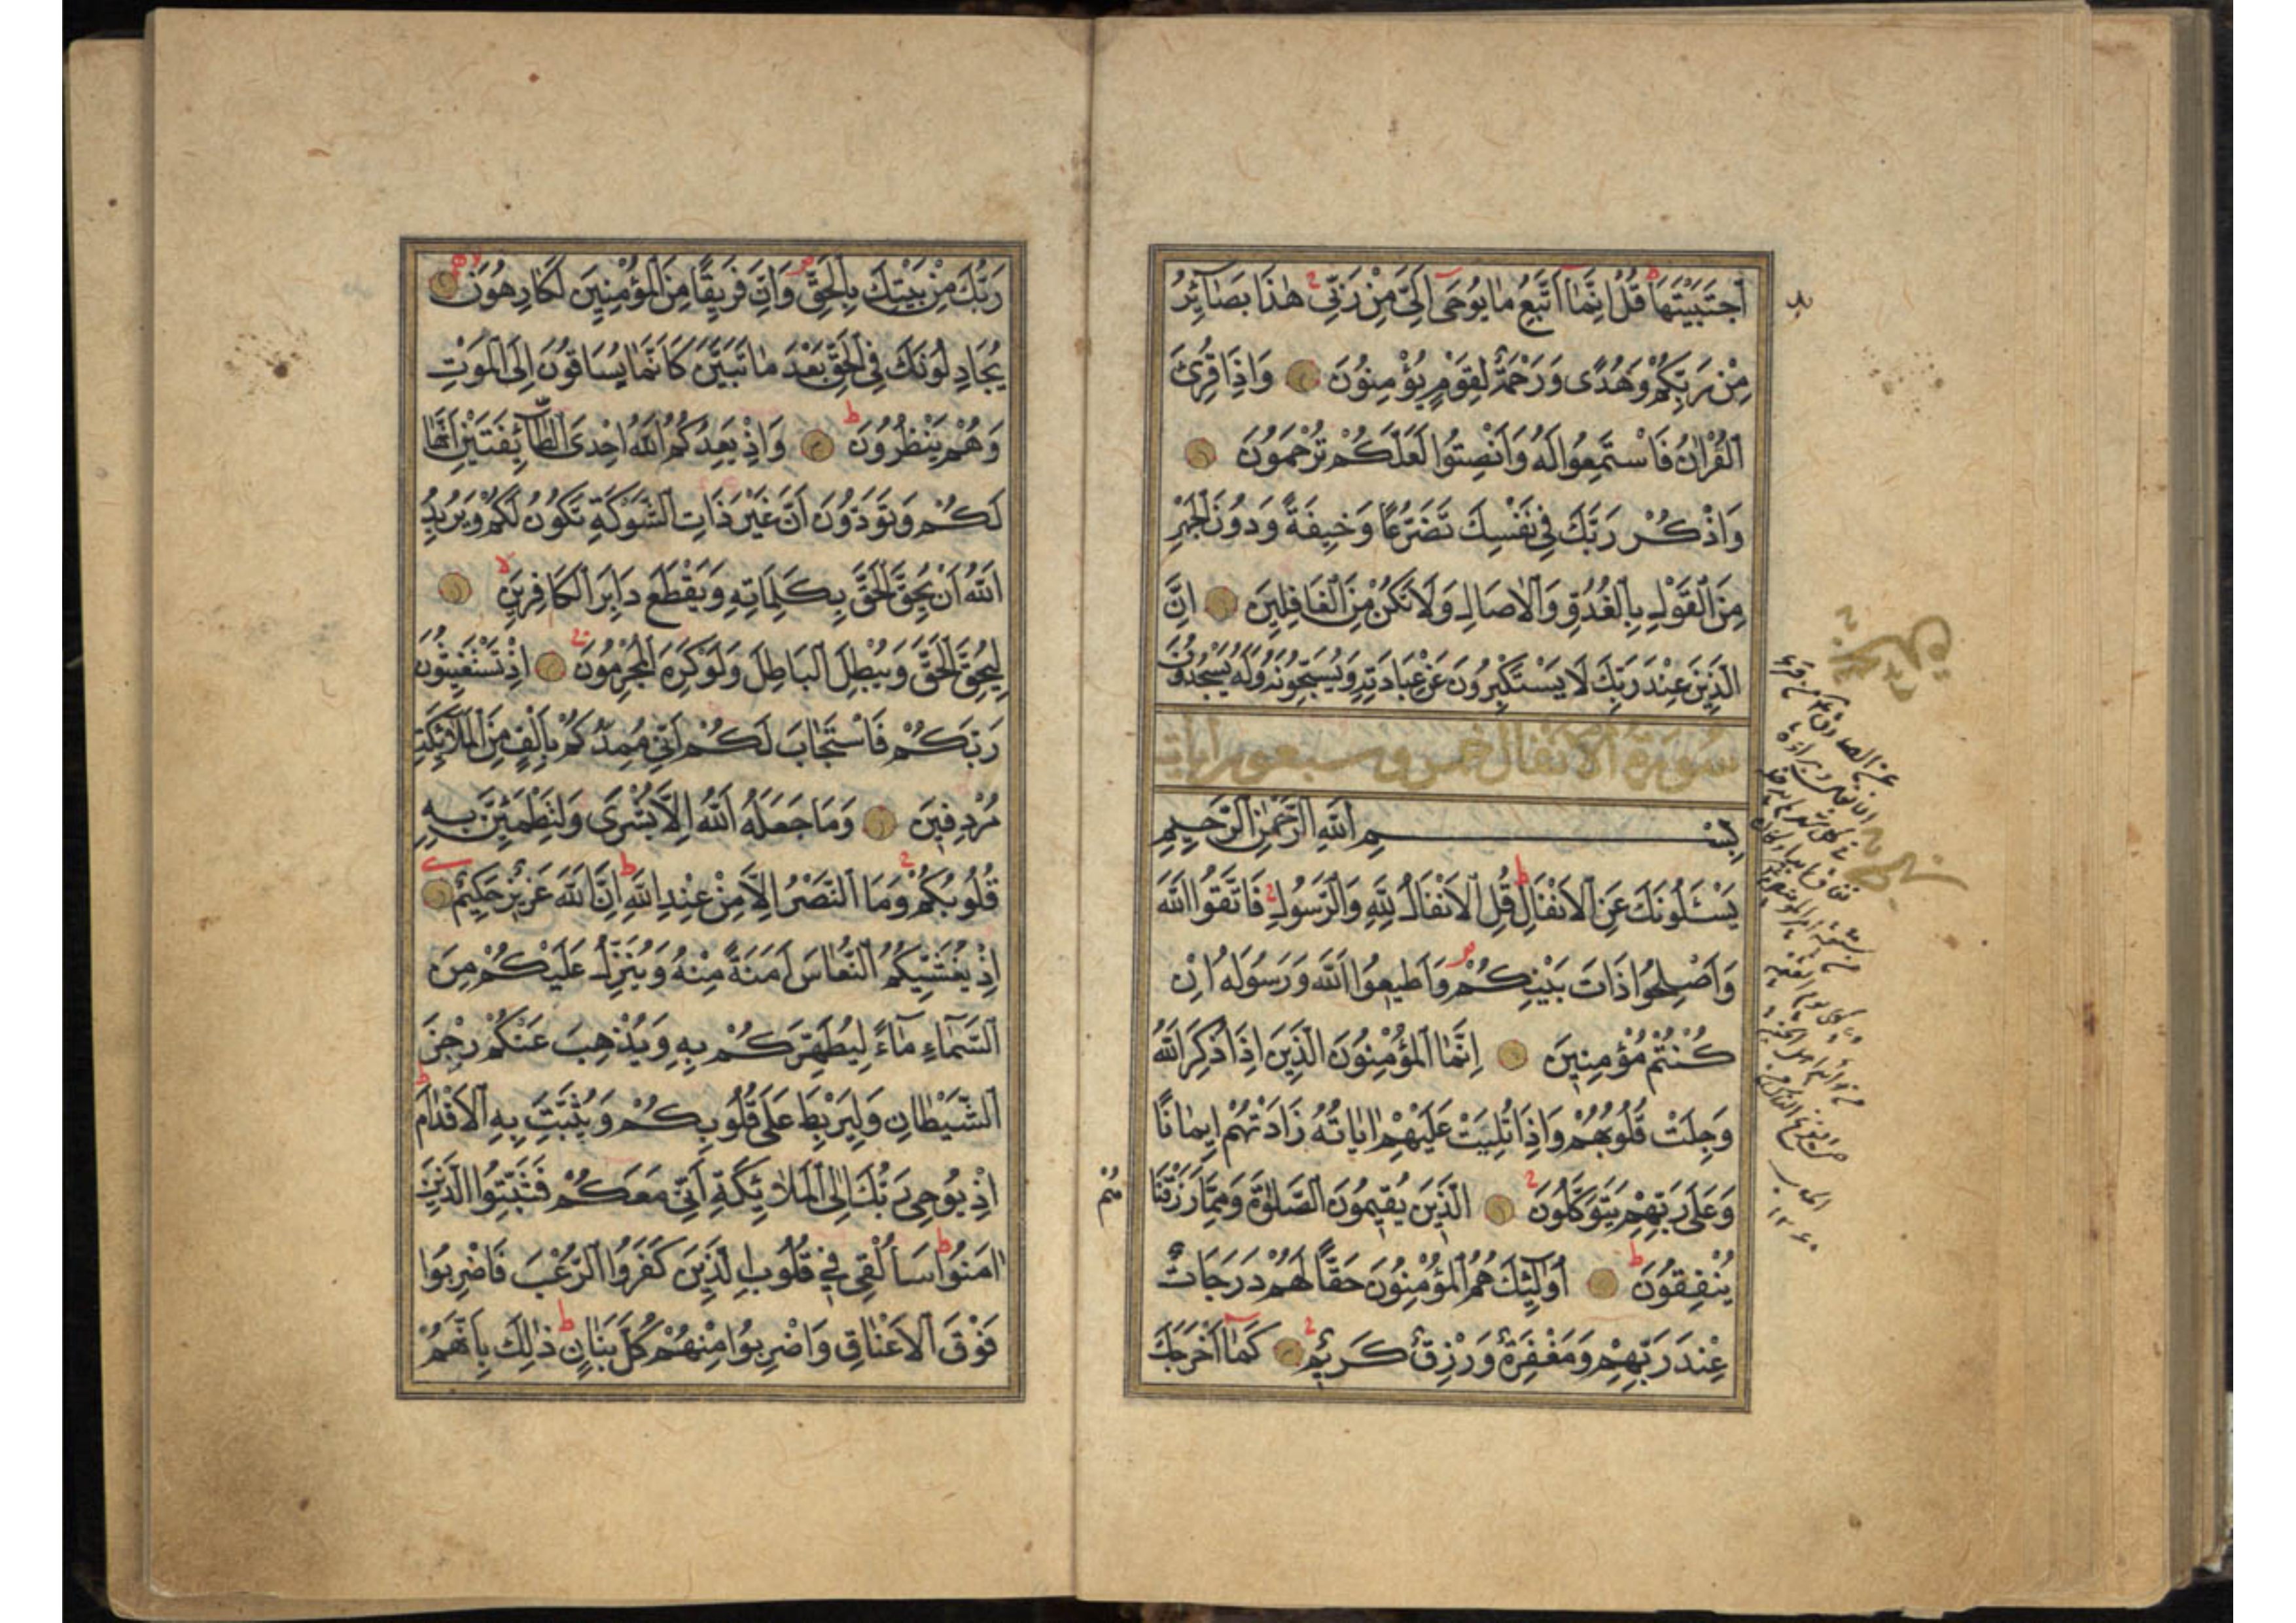 اَجْتَبَيْتَهَا قُلْ اِنَّمَا اَتَّبِعُ مَا يُوحَى اِلَىَّ مِنْ رَبِّى هٰذَا بَصَآئِرُ
مِنْ رَبِّكُمْ وَهُدًى وَرَحْمَةٌ لِقَوْمٍ يُؤْمِنُونَ وَاِذَا قُرِئَ
الْقُرْاٰنُ فَاسْتَمِعُوا لَهُ وَاَنْصِتُوا لَعَلَّكُمْ تُرْحَمُونَ
وَاذْكُرْ رَبَّكَ فِى نَفْسِكَ تَضَرُّعًا وَخِيفَةً وَدُونَ الْجَهْرِ
مِنَ الْقَوْلِ بِالْغُدُوِّ وَالْاٰصَالِ وَلَا تَكُنْ مِنَ الْغَافِلِينَ اِنَّ
الَّذِينَ عِنْدَ رَبِّكَ لَا يَسْتَكْبِرُونَ عَنْ عِبَادَتِهِ وَيُسَبِّحُونَهُ وَلَهُ يَسْجُدُونَ
سورة الانفال خمس وسبعون ايات
بِسْمِ اللّٰهِ الرَّحْمٰنِ الرَّحِيمِ
يَسْـَٔلُونَكَ عَنِ الْاَنْفَالِ قُلِ الْاَنْفَالُ لِلّٰهِ وَالرَّسُولِ فَاتَّقُوا اللّٰهَ
وَاَصْلِحُوا ذَاتَ بَيْنِكُمْ وَاَطِيعُوا اللّٰهَ وَرَسُولَهُ اِنْ
كُنْتُمْ مُؤْمِنِينَ اِنَّمَا الْمُؤْمِنُونَ الَّذِينَ اِذَا ذُكِرَ اللّٰهُ
وَجِلَتْ قُلُوبُهُمْ وَاِذَا تُلِيَتْ عَلَيْهِمْ اٰيَاتُهُ زَادَتْهُمْ اِيمَانًا
وَعَلَى رَبِّهِمْ يَتَوَكَّلُونَ الَّذِينَ يُقِيمُونَ الصَّلٰوةَ وَمِمَّا رَزَقْنَا
هُمْ
يُنْفِقُونَ اُولٰٓئِكَ هُمُ الْمُؤْمِنُونَ حَقًّا لَهُمْ دَرَجَاتٌ
عِنْدَ رَبِّهِمْ وَمَغْفِرَةٌ وَرِزْقٌ كَرِيمٌ كَمَا اَخْرَجَكَ
رَبُّكَ مِنْ بَيْتِكَ بِالْحَقِّ وَاِنَّ فَرِيقًا مِنَ الْمُؤْمِنِينَ لَكَارِهُونَ
يُجَادِلُونَكَ فِى الْحَقِّ بَعْدَ مَا تَبَيَّنَ كَاَنَّمَا يُسَاقُونَ اِلَى الْمَوْتِ
وَهُمْ يَنْظُرُونَ وَاِذْ يَعِدُكُمُ اللّٰهُ اِحْدَى الطَّآئِفَتَيْنِ اَنَّهَا
لَكُمْ وَتَوَدُّونَ اَنَّ غَيْرَ ذَاتِ الشَّوْكَةِ تَكُونُ لَكُمْ وَيُرِيدُ
اللّٰهُ اَنْ يُحِقَّ الْحَقَّ بِكَلِمَاتِهِ وَيَقْطَعَ دَابِرَ الْكَافِرِينَ
لِيُحِقَّ الْحَقَّ وَيُبْطِلَ الْبَاطِلَ وَلَوْ كَرِهَ الْمُجْرِمُونَ اِذْ تَسْتَغِيثُونَ
رَبَّكُمْ فَاسْتَجَابَ لَكُمْ اَنِّى مُمِدُّكُمْ بِاَلْفٍ مِنَ الْمَلَائِكَةِ
مُرْدِفِينَ وَمَا جَعَلَهُ اللّٰهُ اِلَّا بُشْرَى وَلِتَطْمَئِنَّ بِهِ
قُلُوبُكُمْ وَمَا النَّصْرُ اِلَّا مِنْ عِنْدِ اللّٰهِ اِنَّ اللّٰهَ عَزِيزٌ حَكِيمٌ
اِذْ يُغَشِّيكُمُ النُّعَاسَ اَمَنَةً مِنْهُ وَيُنَزِّلُ عَلَيْكُمْ مِنَ
السَّمَآءِ مَآءً لِيُطَهِّرَكُمْ بِهِ وَيُذْهِبَ عَنْكُمْ رِجْزَ
الشَّيْطَانِ وَلِيَرْبِطَ عَلَى قُلُوبِكُمْ وَيُثَبِّتَ بِهِ الْاَقْدَامَ
اِذْ يُوحِى رَبُّكَ اِلَى الْمَلَائِكَةِ اَنِّى مَعَكُمْ فَثَبِّتُوا الَّذِينَ
اٰمَنُوا سَاُلْقِى فِى قُلُوبِ الَّذِينَ كَفَرُوا الرُّعْبَ فَاضْرِبُوا
فَوْقَ الْاَعْنَاقِ وَاضْرِبُوا مِنْهُمْ كُلَّ بَنَانٍ ذٰلِكَ بِاَنَّهُمْ